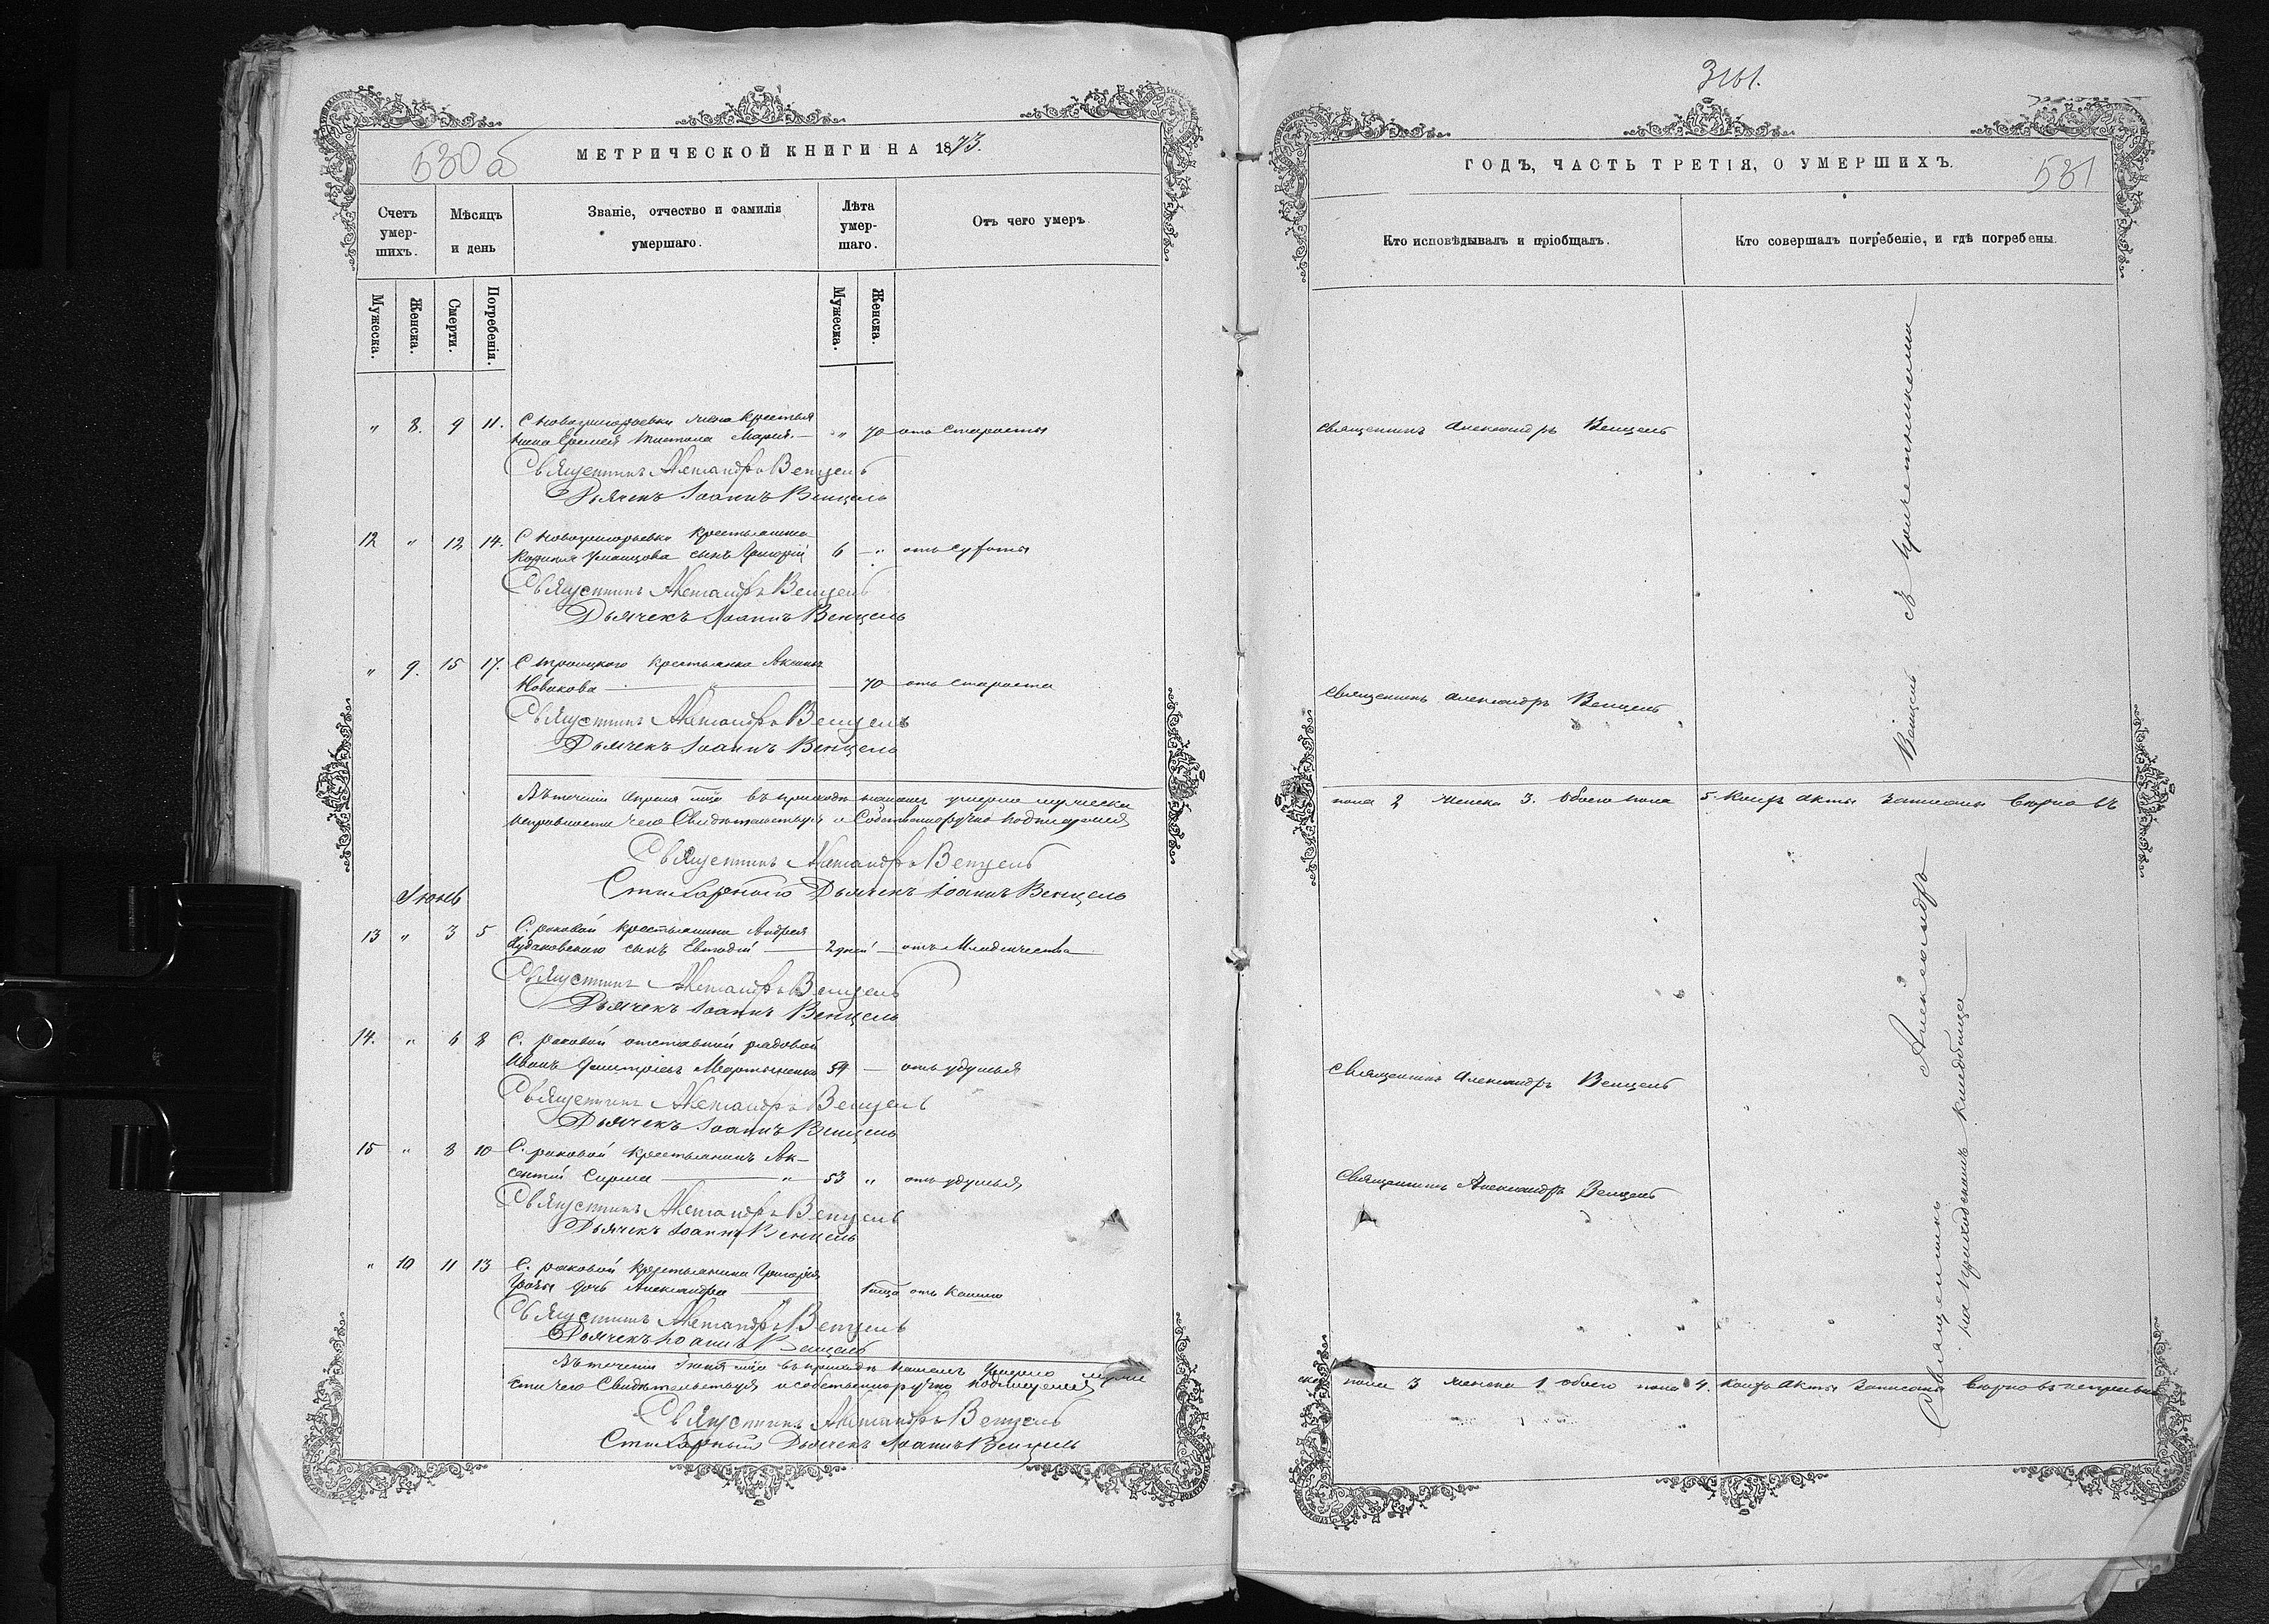 530 об
МЕТРИЧЕСКОЙ КНИГИ НА 1873.
Счетъ умер-шихъ.
Мѣсяцъ и день
Званіе, отчество и фамилія умершаго.
Лѣта умер-шаго.
Отъ чего умеръ
Мужеска.
Женска.
Смерти.
Погребенія.
Мужеска.
Женска.
" 8. 9 11. С Новогригорьевки жена крестья
нина Еремея Мария. — " 70 отъ старости
Священникъ Александръ Венцель
Дьячекъ Іоаннъ Венцель
12 " 12 14. С Новогригорьевки крестьянина
Уманцова сынъ Григорій 6 — " отъ
Священникъ Александръ Венцель
Дьячекъ Іоаннъ Венцель
" 9. 15 17. С Троицкого крестьянка
Новакова — " — 70 отъ старости
Священникъ Александръ Венцель
Дьячекъ Іоаннъ Венцель
Въ течении Апреля мца въ приходѣ нашемъ умерло мужеска
исправности чего Свидѣтельствуя и Собственноручно подписуемся
Священникъ Александръ Венцель
Стихарный Дьячекъ Іоаннъ Венцель
Іюнь
13 " 3 5 С. раковой крестьянина Андрея
сынъ — 2 дней — отъ Младенчества
Священникъ Александръ Венцель
Дьячекъ Іоаннъ Венцель
14. " 6 8 С. раковой отставной рядовой
Иванъ Дмитріевъ Мартыненко 54 — отъ удушья
Священникъ Александръ Венцель
Дьячекъ Іоаннъ Венцель
15 " 8 10 С. раковой крестьянинъ Ак-
сентій Сирма — " — 53 " отъ удушья
Священникъ Александръ Венцель
Дьячекъ Іоаннъ Венцель
" 10 11 13 С. раковой крестьянина Григорія
дочь Александра — отъ Кашлю
Священникъ Александръ Венцель
Дьячекъ Іоаннъ Венцель
Въ течении Іюня мца въ приходѣ нашемъ Умерло муже
сти чего Свидѣтельствуя и собственноручно подписуемся
Священникъ Александръ Венцель
Стихарный Дьячекъ Іоаннъ Венцель
531
ГОДЪ, ЧАСТЬ ТРЕТІЯ, О УМЕРШИХЪ.
Кто исповѣдывалъ и пріобщалъ.
Кто совершалъ погребеніе, и гдѣ погребены.
священникъ Александръ Венцель
священникъ Александръ Венцель
пола 2 женска 3. обоего пола 5. акты записаны вѣрно въ
священникъ Александръ Венцель
священникъ Александръ Венцель
ска пола 3 женска 1 обоего пола 4. акты записаны вѣрно въ
Священникъ Александръ Венцель съ причетниками
на приходскомъ кладбищѣ